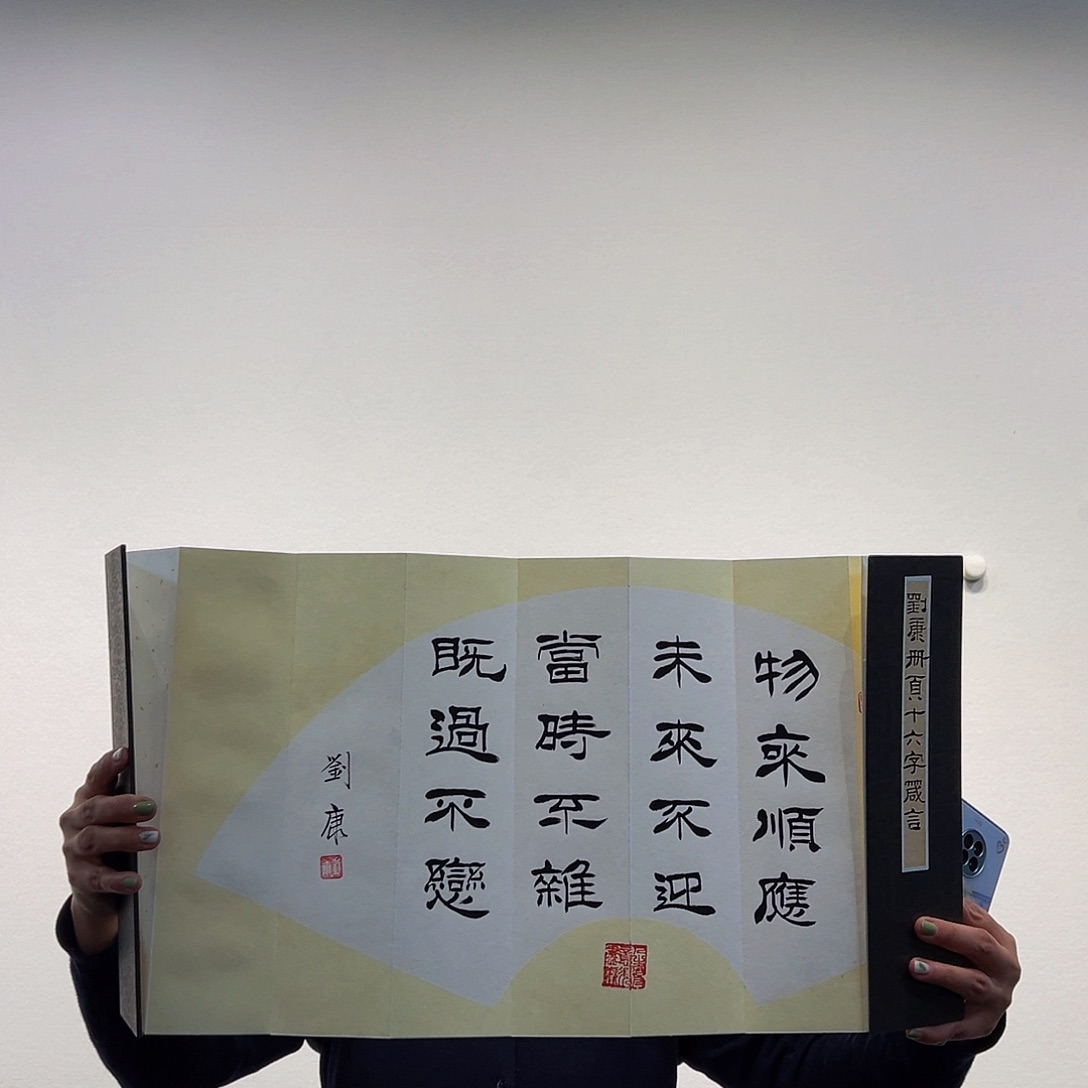 劉康册頁十六字箴言
物來順應
未來不迎
當時不雜
既過不戀
劉康